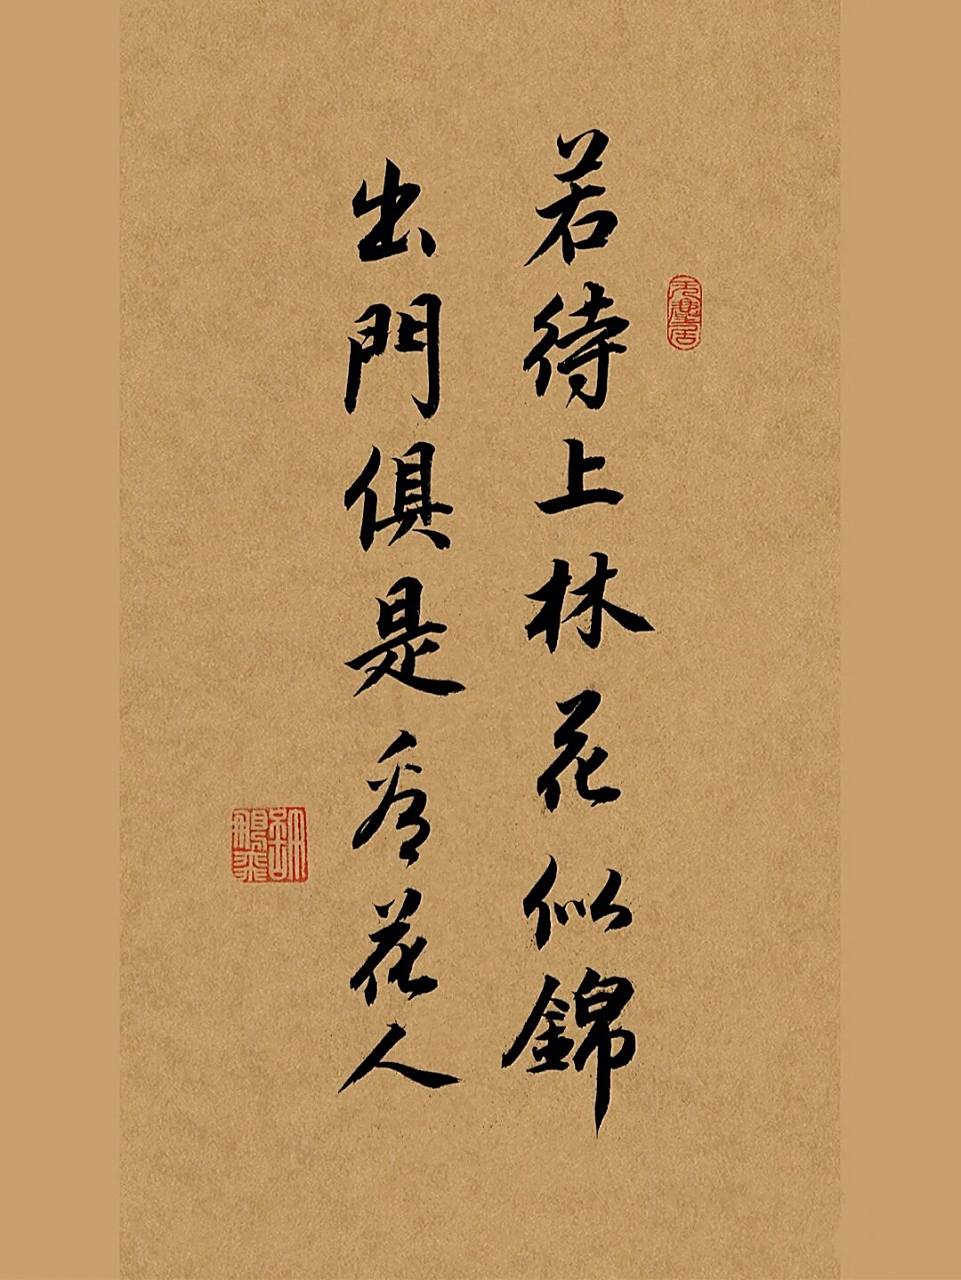 若待上林花似錦
出門俱是看花人